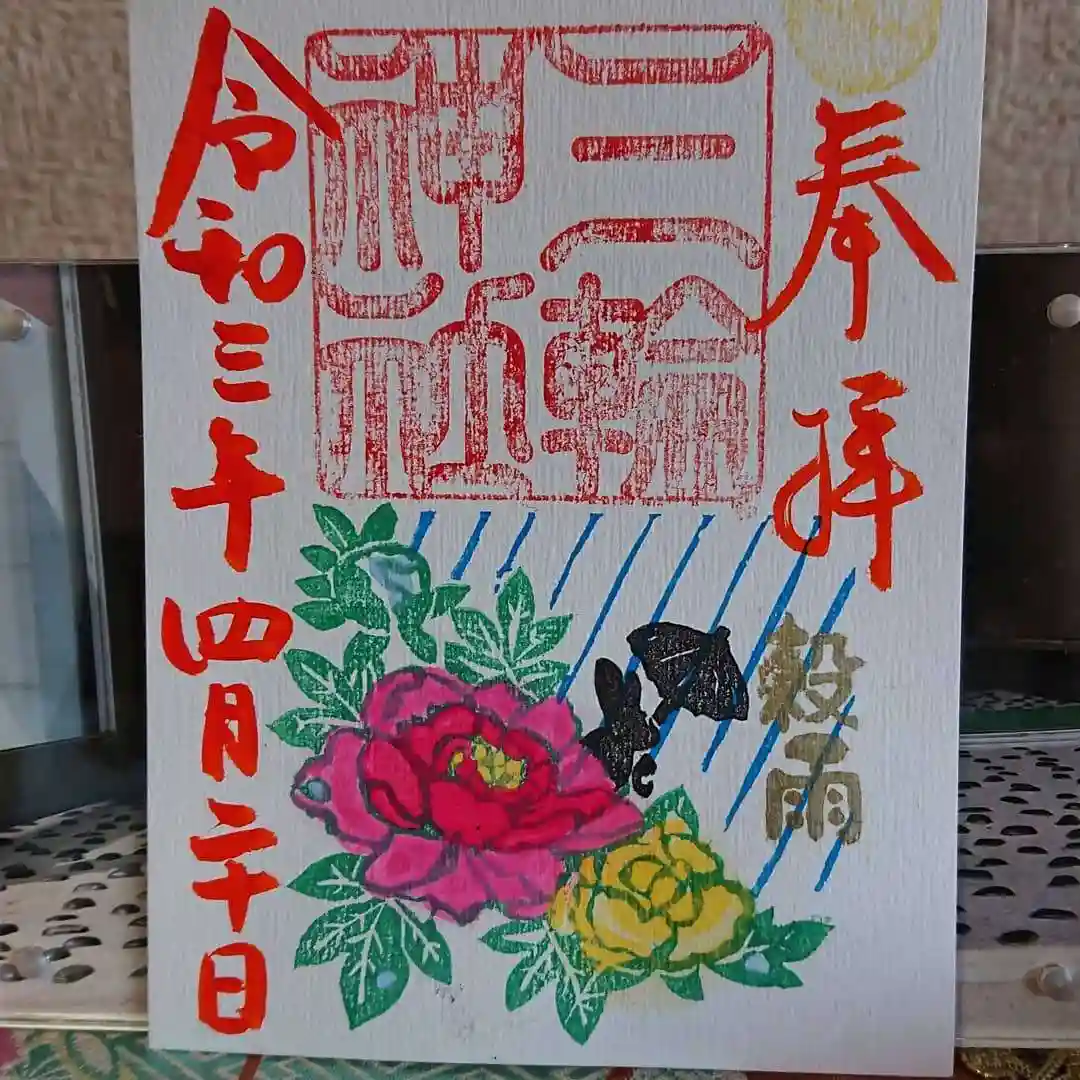 奉拝
三輪
神社
穀雨
令和三年四月二十日